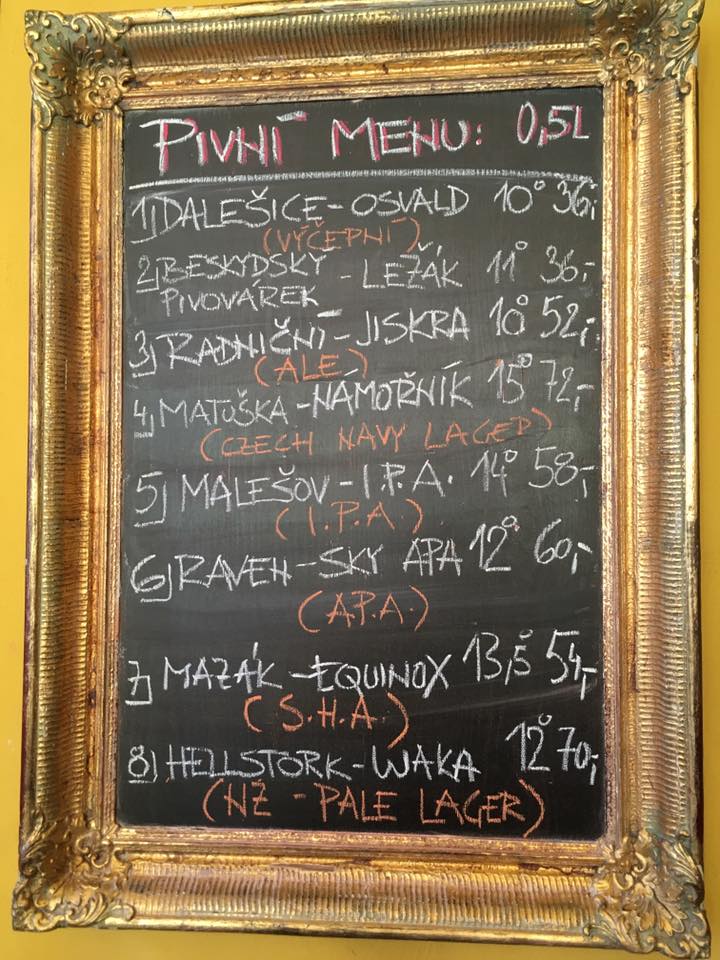 PIVNÍ MENU: 0,5L
1) DALEŠICE - OSVALD 10° 36,-
(VÝČEPNÍ)
2) BESKYDSKÝ - LEŽÁK 11° 36,-
PIVOVÁREK
3) RADNIČNÍ - JISKRA 10° 52,-
(ALE)
4) MATUŠKA - NÁMOŘNÍK 15° 72,-
(CZECH NAVY LAGER)
5) MALEŠOV - I.P.A. 14° 58,-
(I.P.A.)
6) RAVEN - SKY APA 12° 60,-
(A.P.A.)
7) MAZÁK - EQUINOX 13,5° 54,-
(S.H.A.)
8) HELLSTORK - WAKA 12° 70,-
(NZ - PALE LAGER)